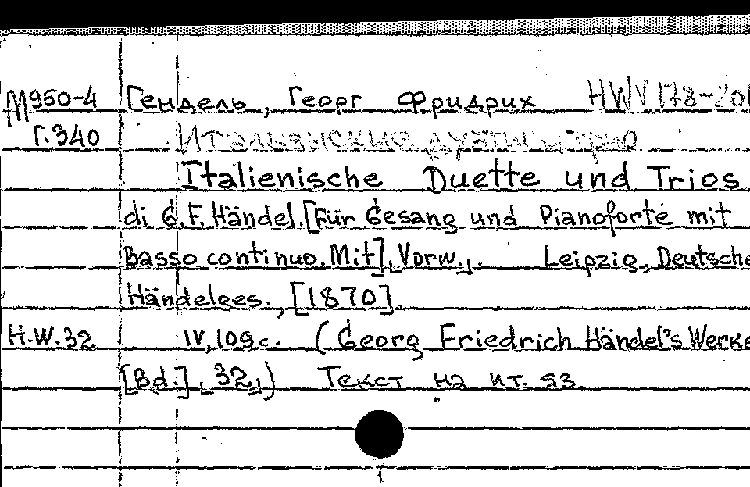 М950-4 Гендель, Георг Фридрих HWV 178-201
Г.340 Итальянские дуэты и трио
Italienische Duette und Trios
di G.F. Händel. [Für Gesang und Pianoforte mit
Basso continuo. Mit] Vorw. Leipzig, Deutsche
Händelges., [1870].
H.W.32 IV, 109 с. (Georg Friedrich Händel's Werke
[Bd.], 32,) Текст на ит. яз.